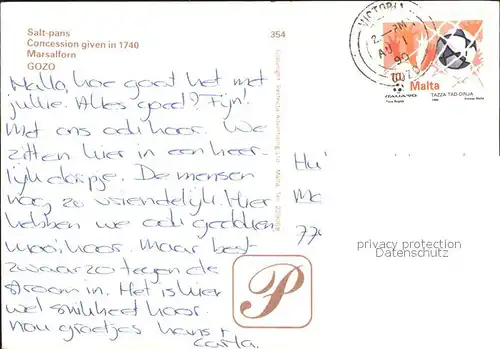 Salt-pans
Concession given in 1740
Marsalforn
GOZO
354
Hallo, hoe gaat het met
jullie. Alles goed? Fijn!
Met ons ook hoor. We
zitten hier in een heer-
lijk dorpje. De mensen
nog zo vriendelijk. Hier
hebben we ook gedoken
mooi hoor. Maar best
zwaar zo tegen de
stroom in. Het is hier
wel snikheet hoor.
nou groetjes hans +
Carla.
P
VICTORIA
2 - PM
AU 1
90
GOZO
Malta
ITALIA '90
TAZZA TAD-DINJA
77
privacy protection
Datenschutz